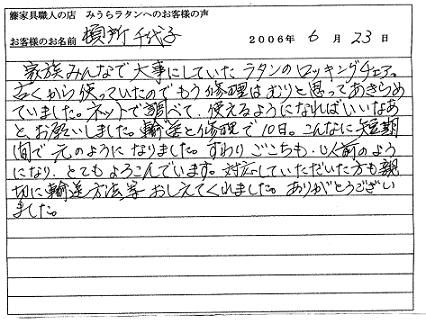 籐家具職人の店 みうらラタンへのお客様の声
お客様のお名前 須所 千代子 2006年 6月 23日
家族みんなで大事にしていたラタンのロッキングチェア。
古くから使っていたのでもう修理はむりと思ってあきらめ
ていました。ネットで調べて、使えるようになればいいなあ
と お願いしました。輸送と修理で10日。こんなに短期
間で元のようになりました。すわりごこちも、以前のよう
になり、とてもよろこんでいます。対応していただいた方も親
切に輸送方法等おしえてくれました。ありがとうござい
ました。